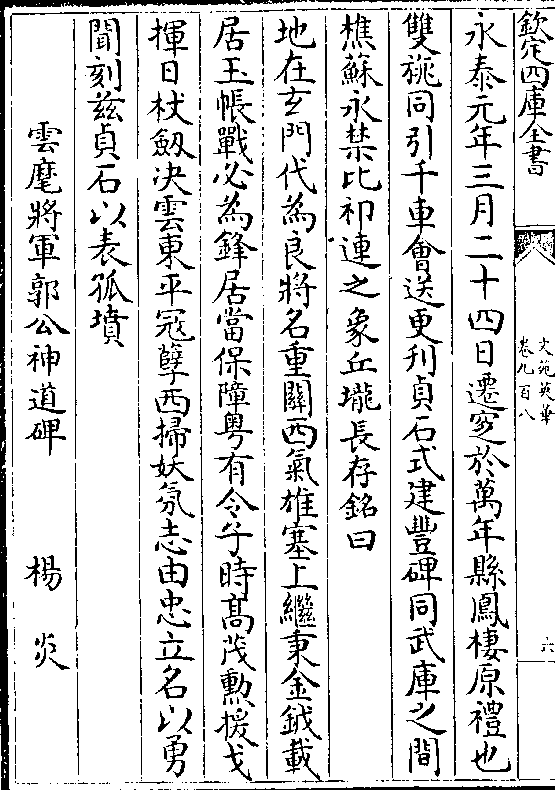 欽定四庫全書
文苑英華
卷九百八
六
永泰元年三月二十四日遷窆於萬年縣鳳棲原禮也
雙旐同引千車會送更刋貞石式建豐碑同武庫之間
樵蘇永禁比祁連之象丘壠長存銘曰
地在玄門代為良將名重關西氣雄塞上繼秉金鉞載
居玉帳戰必為鋒居當保障粤有令子時髙茂勲援戈
揮日杖劔决雲東平冦孽西掃妖氛志由忠立名以勇
聞刻兹貞石以表孤墳
雲麾將軍郭公神道碑 楊炎